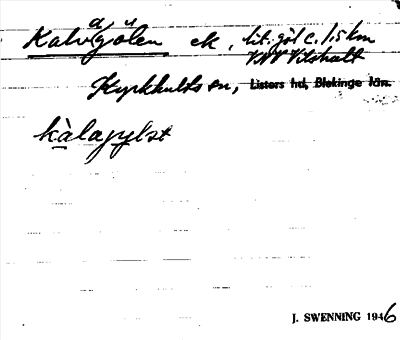 Kalvgölen ek, lit. göl c. 1,5 km
VNV Vilshult
Kyrkhults sn, Listers hd, Blekinge län.
kàlagylst
J. SWENNING 1946